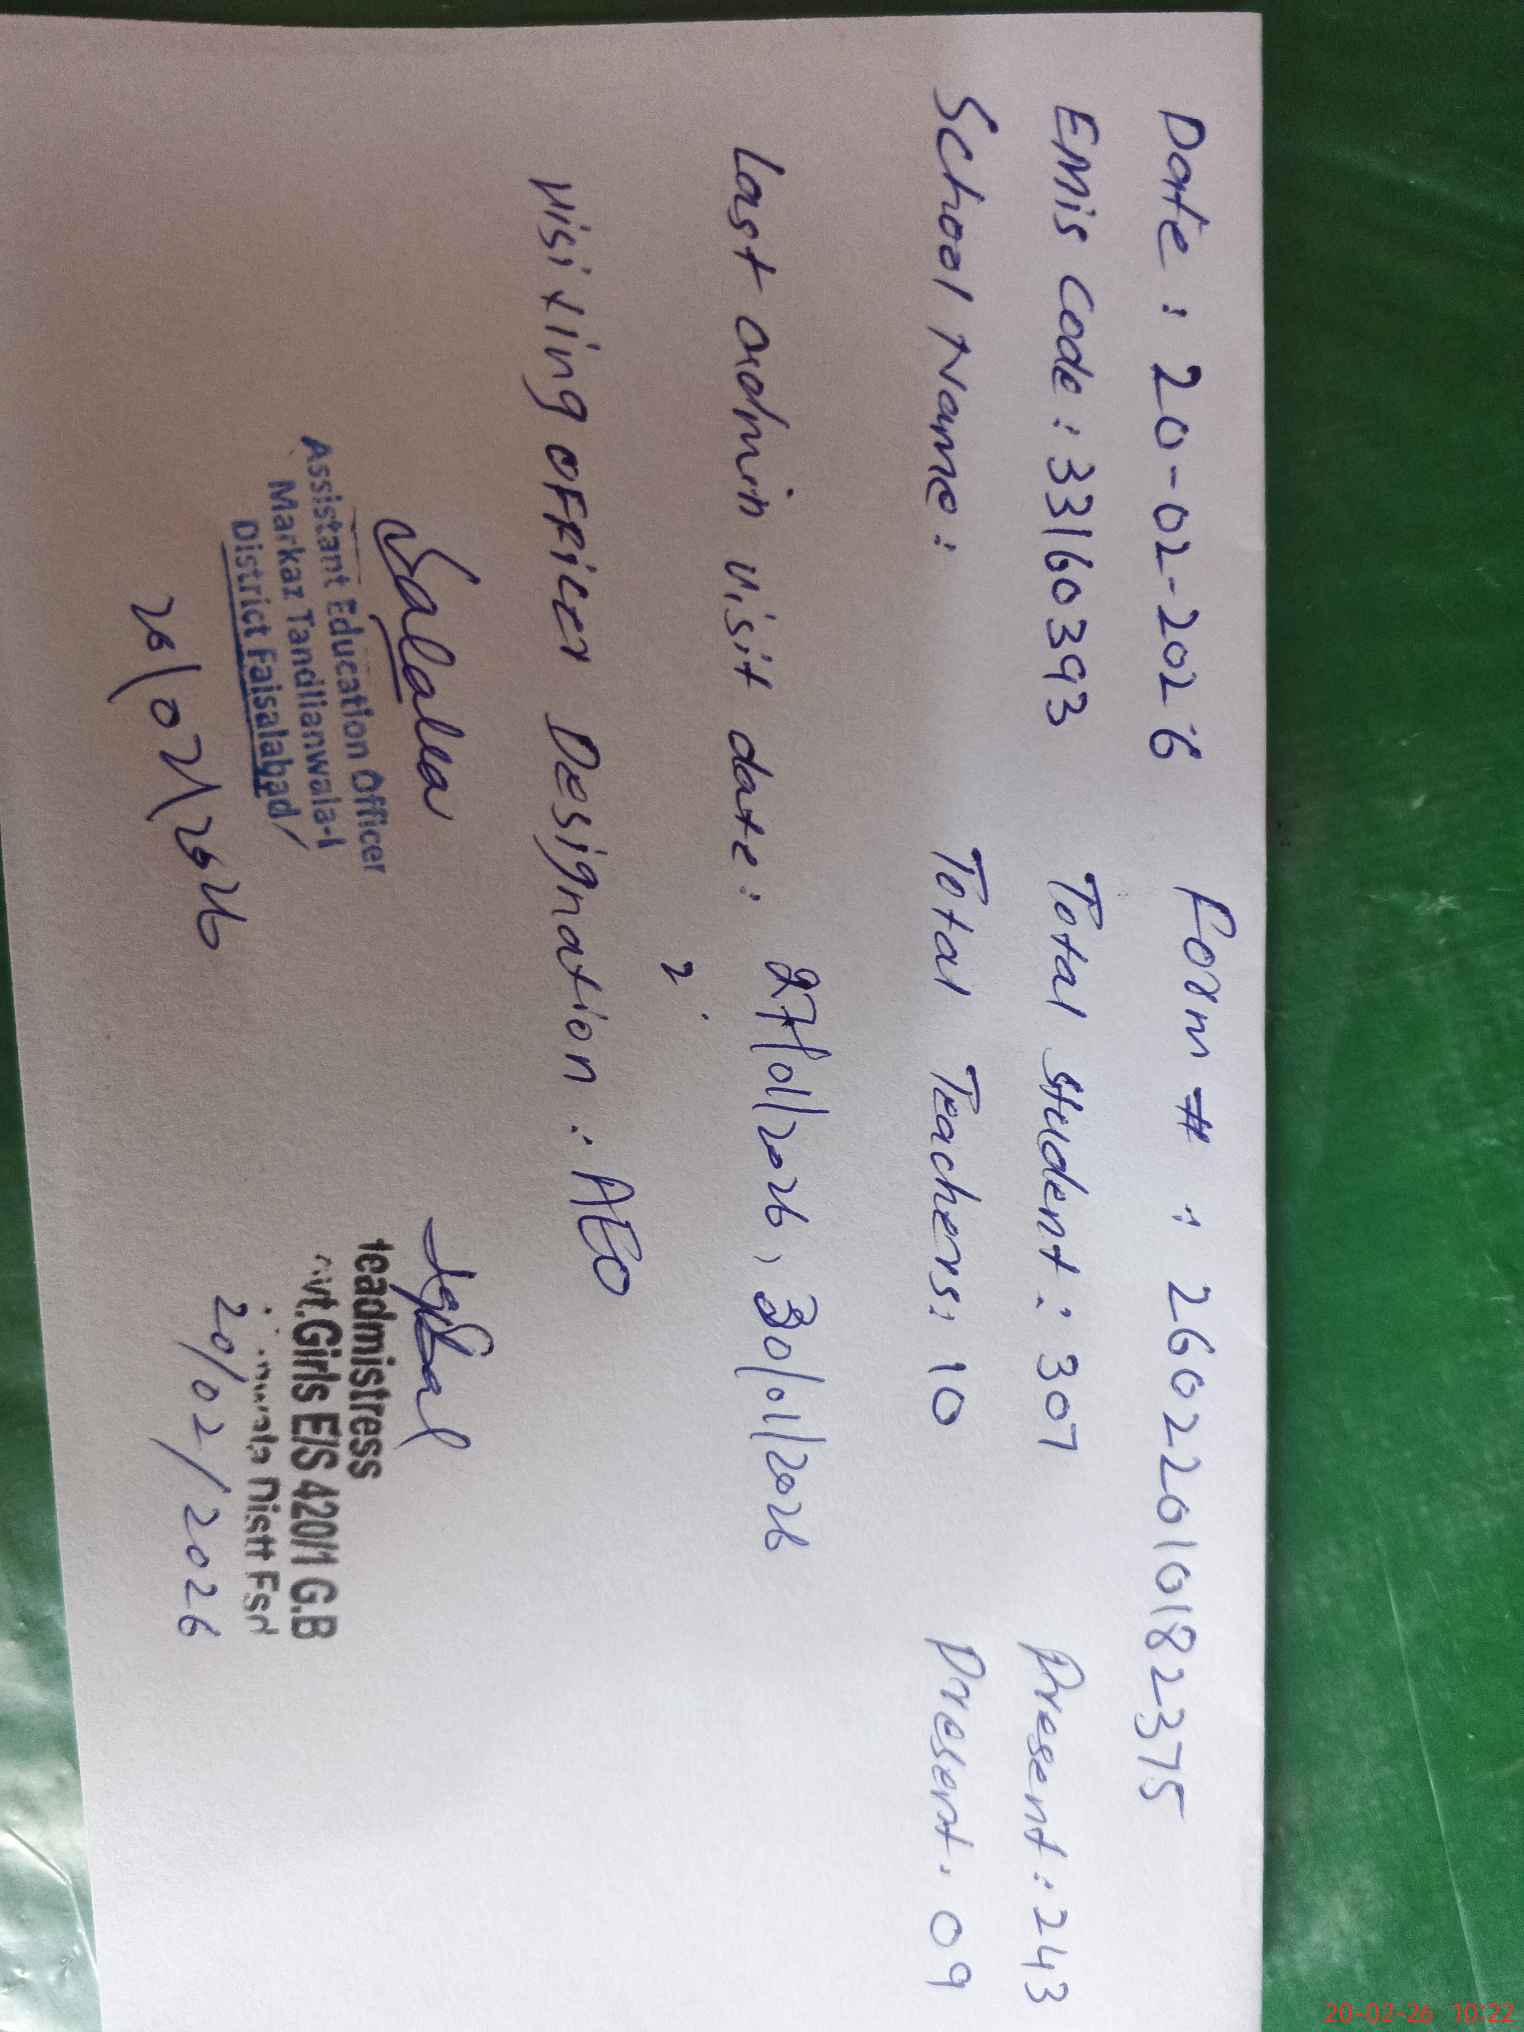 Date : 20-02-2026 Form # : 26022010182375
EMis Code : 33160393 Total Student : 307 Present : 243
School Name : Total Teachers: 10 Present. 09
Last admin visit date : 27/01/2026, 30/01/2026
visiting officer Designation : AEO
Iqbal
Assistant Education Officer
Markaz Tandlianwala-I
District Faisalabad
20/02/2026
eadmistress
vt.Girls E/S 420/1 G.B
Distt Fsd
20/02/2026
20-02-26 10:22